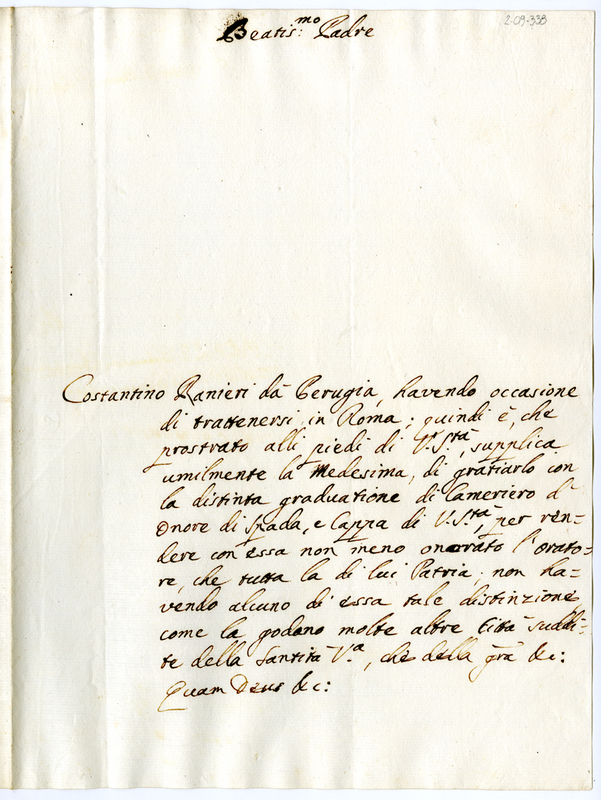 2-09-338
Beatis:mo Padre
Costantino Ranieri dà Perugia, havendo occasione
di trattenersi in Roma; quindi è, che
prostrato alli piedi di V.ra S.tà, supplica
umilmente la Medesima, di gratiarlo con
la distinta graduatione di Cameriero d'
Onore di Spada, e Cappa di V. S.tà, per ren=
dere con essa non meno onorato l'orato=
re, che tutta la di lui Patria; non ha=
vendo alcuno di essa tale distinzione
come la godono molte altre Città suddi=
te della Santità V.a, che della gra &c:
Quam Deus &c: